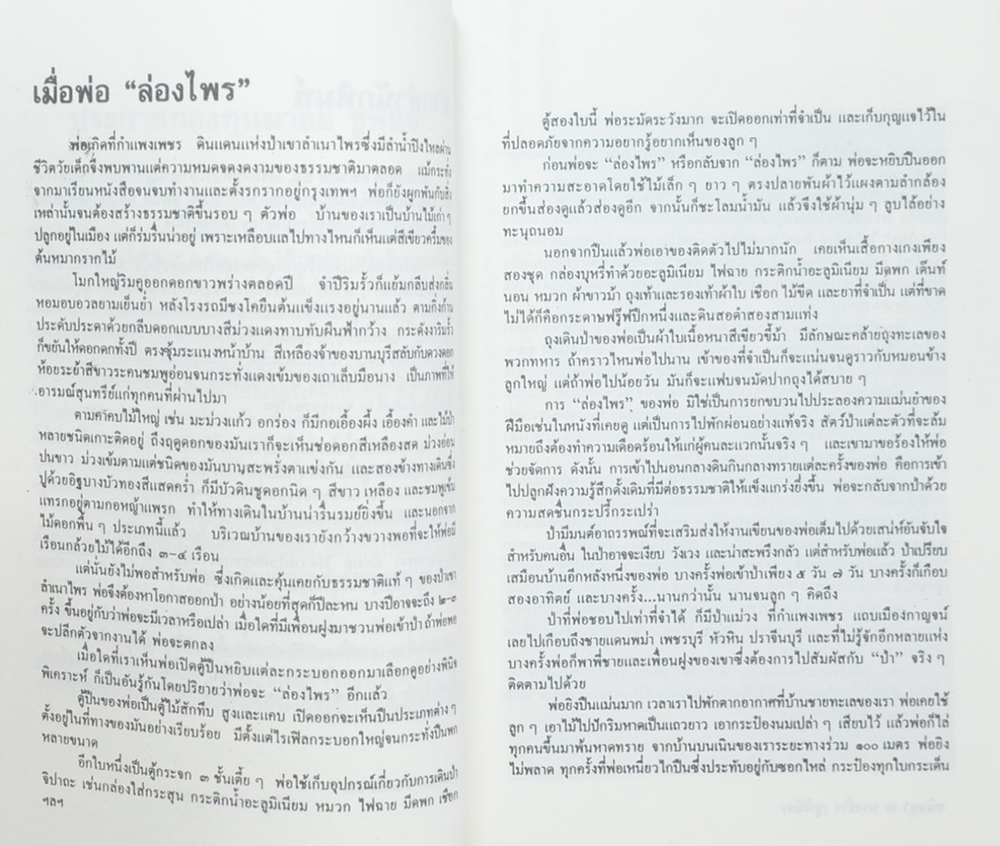 เมื่อพ่อ “ล่องไพร”
พ่อเกิดที่กำแพงเพชร ดินแดนแห่งป่าเขาลำเนาไพรซึ่งมีลำน้ำปิงไหลผ่าน
ชีวิตวัยเด็กจึงพบพานแต่ความหมดจดงดงามของธรรมชาติมาตลอด แม้กระทั่ง
จากมาเรียนหนังสือจนจบทำงานและตั้งรกรากอยู่กรุงเทพฯ พ่อก็ยังผูกพันกับสิ่ง
เหล่านั้นจนต้องสร้างธรรมชาติขึ้นรอบ ๆ ตัวพ่อ บ้านของเราเป็นบ้านไม้เก่า ๆ
ปลูกอยู่ในเมือง แต่ก็ร่มรื่นน่าอยู่ เพราะเหลือบแลไปทางไหนก็เห็นแต่สีเขียวครึ้มของ
ต้นหมากรากไม้
โมกใหญ่ริมคูออกดอกขาวพร่างตลอดปี จำปีริมรั้วก็แย้มกลีบส่งกลิ่น
หอมอบอวลยามเย็นย่ำ หลังโรงรถมีชงโคยืนต้นแข็งแรงอยู่นานแล้ว ตามกิ่งก้าน
ประดับประดาด้วยกลีบดอกแบบบางสีม่วงแดงทาบทับผืนฟ้ากว้าง กระดังงาริมรั้ว
ก็ขยันให้ดอกดกทั้งปี ตรงซุ้มระแนงหน้าบ้าน สีเหลืองจ้าของบานบุรีสลับกับดวงดอก
ห้อยระย้าสีขาวระคนชมพูอ่อนจนกระทั่งแดงเข้มของเถาเล็บมือนาง เป็นภาพที่ให้
อารมณ์สุนทรีย์แก่ทุกคนที่ผ่านไปมา
ตามคาคบไม้ใหญ่ เช่น มะม่วงแก้ว อกร่อง ก็มีกอเอื้องผึ้ง เอื้องคำ และไม้ป่า
หลายชนิดเกาะติดอยู่ ถึงฤดูดอกของมันเราก็จะเห็นช่อดอกสีเหลืองสด ม่วงอ่อน
ปนขาว ม่วงเข้มตามแต่ชนิดของมันบานสะพรั่งตาแข่งกัน และสองข้างทางเดินซึ่ง
ปูด้วยอิฐบางบัวทองสีแสดคร่ำ ก็มีบัวดินชูดอกนิด ๆ สีขาว เหลือง และชมพูเข้ม
แทรกอยู่ตามกอหญ้าแพรก ทำให้ทางเดินในบ้านน่ารื่นรมย์ยิ่งขึ้น และนอกจาก
ไม้ดอกพื้น ๆ ประเภทนี้แล้ว บริเวณบ้านของเรายังกว้างขวางพอที่จะให้พ่อมี
เรือนกล้วยไม้ได้อีกถึง ๓-๔ เรือน
แต่นั้นยังไม่พอสำหรับพ่อ ซึ่งเกิดและคุ้นเคยกับธรรมชาติแท้ ๆ ของป่าเขา
ลำเนาไพร พ่อจึงต้องหาโอกาสออกป่า อย่างน้อยที่สุดก็ปีละหน บางปีอาจจะถึง ๒-๓
ครั้ง ขึ้นอยู่กับว่าพ่อจะมีเวลาหรือเปล่า เมื่อใดที่มีเพื่อนฝูงมาชวนพ่อเข้าป่า ถ้าพ่อพอ
จะปลีกตัวจากงานได้ พ่อจะตกลง
เมื่อใดที่เราเห็นพ่อเปิดตู้ปืนหยิบแต่ละกระบอกออกมาเลือกดูอย่างพินิจ
พิเคราะห์ ก็เป็นอันรู้กันโดยปริยายว่าพ่อจะ “ล่องไพร” อีกแล้ว
ตู้ปืนของพ่อเป็นตู้ไม้สักทึบ สูงและแคบ เปิดออกจะเห็นปืนประเภทต่าง ๆ
ตั้งอยู่ในที่ทางของมันอย่างเรียบร้อย มีตั้งแต่ไรเฟิลกระบอกใหญ่จนกระทั่งปืนพก
หลายขนาด
อีกใบหนึ่งเป็นตู้กระจก ๓ ชั้นเตี้ย ๆ พ่อใช้เก็บอุปกรณ์เกี่ยวกับการเดินป่า
จิปาถะ เช่นกล่องใส่กระสุน กระติกน้ำอะลูมิเนียม หมวก ไฟฉาย มีดพก เชือก
ฯลฯ
ตู้สองใบนี้ พ่อระมัดระวังมาก จะเปิดออกเท่าที่จำเป็น และเก็บกุญแจไว้ใน
ที่ปลอดภัยจากความอยากรู้อยากเห็นของลูก ๆ
ก่อนพ่อจะ “ล่องไพร” หรือกลับจาก “ล่องไพร” ก็ตาม พ่อจะหยิบปืนออก
มาทำความสะอาดโดยใช้ไม้เล็ก ๆ ยาว ๆ ตรงปลายพันผ้าไว้แผงตามลำกล้อง
ยกขึ้นส่องดูแล้วส่องดูอีก จากนั้นก็ชะโลมน้ำมัน แล้วจึงใช้ผ้านุ่ม ๆ ลูบไล้อย่าง
ทะนุถนอม
นอกจากปืนแล้วพ่อเอาของติดตัวไปไม่มากนัก เคยเห็นเสื้อกางเกงเพียง
สองชุด กล่องบุหรี่ทำด้วยอะลูมิเนียม ไฟฉาย กระติกน้ำอะลูมิเนียม มีดพก เต็นท์
นอน หมวก ผ้าขาวม้า ถุงเท้าและรองเท้าผ้าใบ เชือก ไม้ขีด และยาที่จำเป็น แต่ที่ขาด
ไม่ได้ก็คือกระดาษฟรู๊ฟปึกหนึ่งและดินสอดำสองสามแท่ง
ถุงเดินป่าของพ่อเป็นผ้าใบเนื้อหนาสีเขียวขี้ม้า มีลักษณะคล้ายถุงทะเลของ
พวกทหาร ถ้าคราวไหนพ่อไปนาน เข้าของที่จำเป็นก็จะแน่นจนดูราวกับหมอนข้าง
ลูกใหญ่ แต่ถ้าพ่อไปน้อยวัน มันก็จะแฟบจนมัดปากถุงได้สบาย ๆ
การ “ล่องไพร” ของพ่อ มิใช่เป็นการยกขบวนไปประลองความแม่นยำของ
ฝีมือเช่นในหนังที่เคยดู แต่เป็นการไปพักผ่อนอย่างแท้จริง สัตว์ป่าแต่ละตัวที่จะล้ม
หมายถึงต้องทำความเดือดร้อนให้แก่ผู้คนละแวกนั้นจริง ๆ และเขามาขอร้องให้พ่อ
ช่วยจัดการ ดังนั้น การเข้าไปนอนกลางดินกินกลางทรายแต่ละครั้งของพ่อ คือการเข้า
ไปปลูกฝังความรู้สึกดั้งเดิมที่มีต่อธรรมชาติให้แข็งแกร่งยิ่งขึ้น พ่อจะกลับจากป่าด้วย
ความสดชื่นกระปรี้กระเปร่า
ป่ามีมนต์อาถรรพณ์ที่จะเสริมส่งให้งานเขียนของพ่อเต็มไปด้วยเสน่ห์อันจับใจ
สำหรับคนอื่น ในป่าอาจจะเงียบ วังเวง และน่าสะพรึงกลัว แต่สำหรับพ่อแล้ว ป่าเปรียบ
เสมือนบ้านอีกหลังหนึ่งของพ่อ บางครั้งพ่อเข้าป่าเพียง ๕ วัน ๗ วัน บางครั้งก็เกือบ
สองอาทิตย์ และบางครั้ง...นานกว่านั้น นานจนลูก ๆ คิดถึง
ป่าที่พ่อชอบไปเท่าที่จำได้ ก็มีป่าแม่วง ที่กำแพงเพชร แถบเมืองกาญจน์
เลยไปเกือบถึงชายแดนพม่า เพชรบุรี หัวหิน ปราจีนบุรี และที่ไม่รู้จักอีกหลายแห่ง
บางครั้งพ่อก็พาพี่ชายและเพื่อนฝูงของเขาซึ่งต้องการไปสัมผัสกับ “ป่า” จริง ๆ
ติดตามไปด้วย
พ่อยิงปืนแม่นมาก เวลาเราไปพักตากอากาศที่บ้านชายทะเลของเรา พ่อเคยใช้
ลูก ๆ เอาไม้ไปปักริมหาดเป็นแถวยาว เอากระป๋องนมเปล่า ๆ เสียบไว้ แล้วพ่อก็ไล่
ทุกคนขึ้นมาพ้นหาดทราย จากบ้านบนเนินของเราระยะทางร่วม ๑๐๐ เมตร พ่อยิง
ไม่พลาด ทุกครั้งที่พ่อเหนี่ยวไกปืนซึ่งประทับอยู่กับซอกไหล่ กระป๋องทุกใบกระเด็น